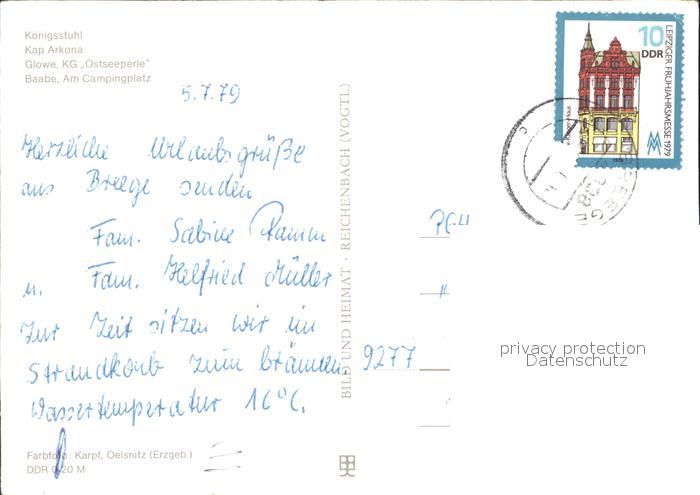 Königsstuhl
Kap Arkona
Glowe, KG „Ostseeperle"
Baabe, Am Campingplatz
5.7.79
Herzliche Urlaubsgrüße
aus Breege senden
Fam. Sabine Ramm
u. Fam. Helfried Müller
Zur Zeit sitzen wir im
Strandkorb zum bräunen
Wassertemperatur 16°C.
Farbfoto: Karpf, Oelsnitz (Erzgeb.)
DDR 0,20 M
BILD UND HEIMAT · REICHENBACH (VOGTL)
10
DDR
LEIPZIGER FRÜHJAHRSMESSE 1979
9277
privacy protection
Datenschutz